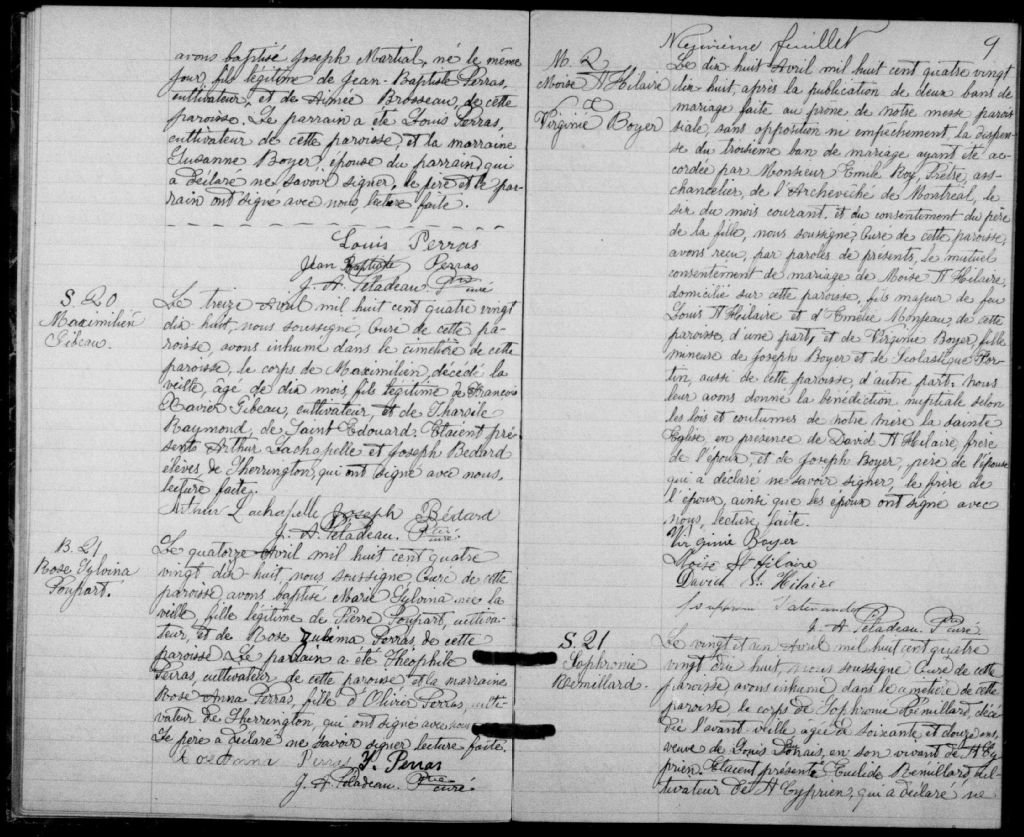 avons baptisé Joseph Martial, né le même
jour, fils légitime de Jean-Baptiste Perras,
cultivateur, et de Aimée Brosseau, de cette
paroisse. Le parrain a été Louis Perras,
cultivateur de cette paroisse, et la marraine
Suzanne Boyer, épouse du parrain, qui
a déclaré ne savoir signer, le père et le par-
rain ont signé avec nous, lecture faite.
Louis Perras
Jean Baptiste Perras
J. A. Péladeau. Ptre curé
S. 20
Maximilien
Gibeau.
Le treize Avril mil huit cent quatre vingt
dix-huit, nous soussigné, Curé de cette pa-
roisse, avons inhumé dans le cimetière de cette
paroisse, le corps de Maximilien, décédé la
veille, âgé de dix mois, fils légitime de François
Xavier Gibeau, cultivateur, et de Tharsile
Raymond, de Saint Edouard. Etaient pré-
sents Arthur Lachapelle et Joseph Bédard
élèves, de Sherrington, qui ont signé avec nous,
lecture faite.
Arthur Lachapelle Joseph Bédard
J. A. Péladeau. Ptre curé.
B. 21
Rose Sylvina
Poupart.
Le quatorze Avril mil huit cent quatre
vingt dix-huit, nous soussigné Curé de cette
paroisse avons baptisé Marie Sylvina née la
veille, fille légitime de Pierre Poupart, cultiva-
teur, et de Rose Zulema Perras, de cette
paroisse. Le parrain a été Théophile
Perras, cultivateur de cette paroisse et la marraine
Rose Anna Perras, fille d'Olivier Perras, culti-
vateur de Sherrington, qui ont signé avec nous
Le père a déclaré ne savoir signer lecture faite.
Rose Anna Perras T. Perras
J. A. Péladeau. Ptre curé.
Neuvième feuillet
9
M. 2
Moise St Hilaire
&
Virginie Boyer
Le dix huit Avril mil huit cent quatre vingt
dix huit, après la publication de deux bans de
mariage faite au prône de notre messe parois
siale, sans opposition ni empêchement, la dispen-
se du troisième ban de mariage ayant été ac-
cordée par Monsieur Emile Roy, Prêtre, ass-
chancelier, de l'Archevêché de Montréal, le
six du mois courant, et du consentement du père
de la fille, nous soussigné, Curé de cette paroisse,
avons reçu, par paroles de présents, le mutuel
consentement de mariage de Moise St Hilaire,
domicilié sur cette paroisse, fils majeur de feu
Louis St Hilaire et d'Emélie Monjeau, de cette
paroisse, d'une part, et de Virginie Boyer, fille
mineure de Joseph Boyer et de Scolastique For-
tin, aussi de cette paroisse, d'autre part. Nous
leur avons donné la bénédiction nuptiale selon
les lois et coutumes de notre mère la sainte
Eglise, en présence de David St Hilaire, frère
de l'époux, et de Joseph Boyer, père de l'épouse
qui a déclaré ne savoir signer, le frère de
l'époux, ainsi que les époux ont signé avec
nous, lecture faite.
Virginie Boyer
Moise St Hilaire
David St. Hilaire
J. A. Péladeau. Ptre curé.
S. 21
Sophronie
Rémillard.
Le vingt et un Avril mil huit cent quatre
vingt dix huit, nous soussigné Curé de cette
paroisse, avons inhumé, dans le cimetière de cette
paroisse le corps de Sophronie Rémillard, décé
dée l'avant veille âgée de soixante et douze ans,
veuve de Louis en son vivant de St Cy
prien. Etaient présents Euclide Rémillard, cul-
tivateur de St Cyprien, qui a déclaré ne